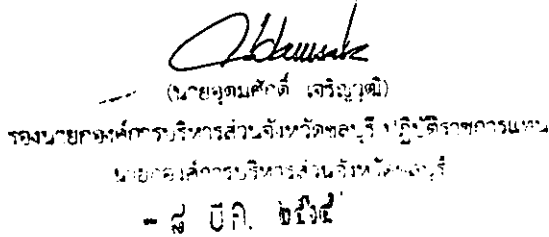 (นายอุดมศักดิ์ เจริญวุฒิ)
รองนายกองค์การบริหารส่วนจังหวัดชลบุรี ปฏิบัติราชการแทน
นายกองค์การบริหารส่วนจังหวัดชลบุรี
- ๘ มี.ค. ๒๕๖๔